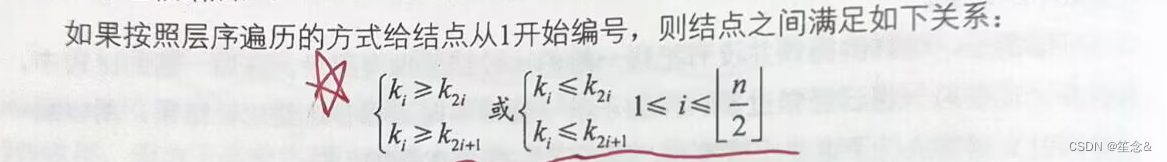 如果按照层序遍历的方式给结点从1开始编号，则结点之间满足如下关系：
{kᵢ ≥ k₂ᵢ 或 {kᵢ ≤ k₂ᵢ 1 ≤ i ≤ ⌊n/2⌋
{kᵢ ≥ k₂ᵢ₊₁ {kᵢ ≤ k₂ᵢ₊₁
CSDN @笙念&